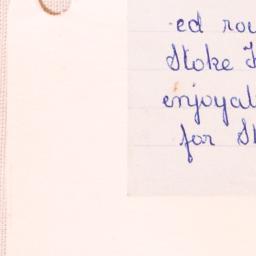 ed rou
Stoke
enjoyal
for S